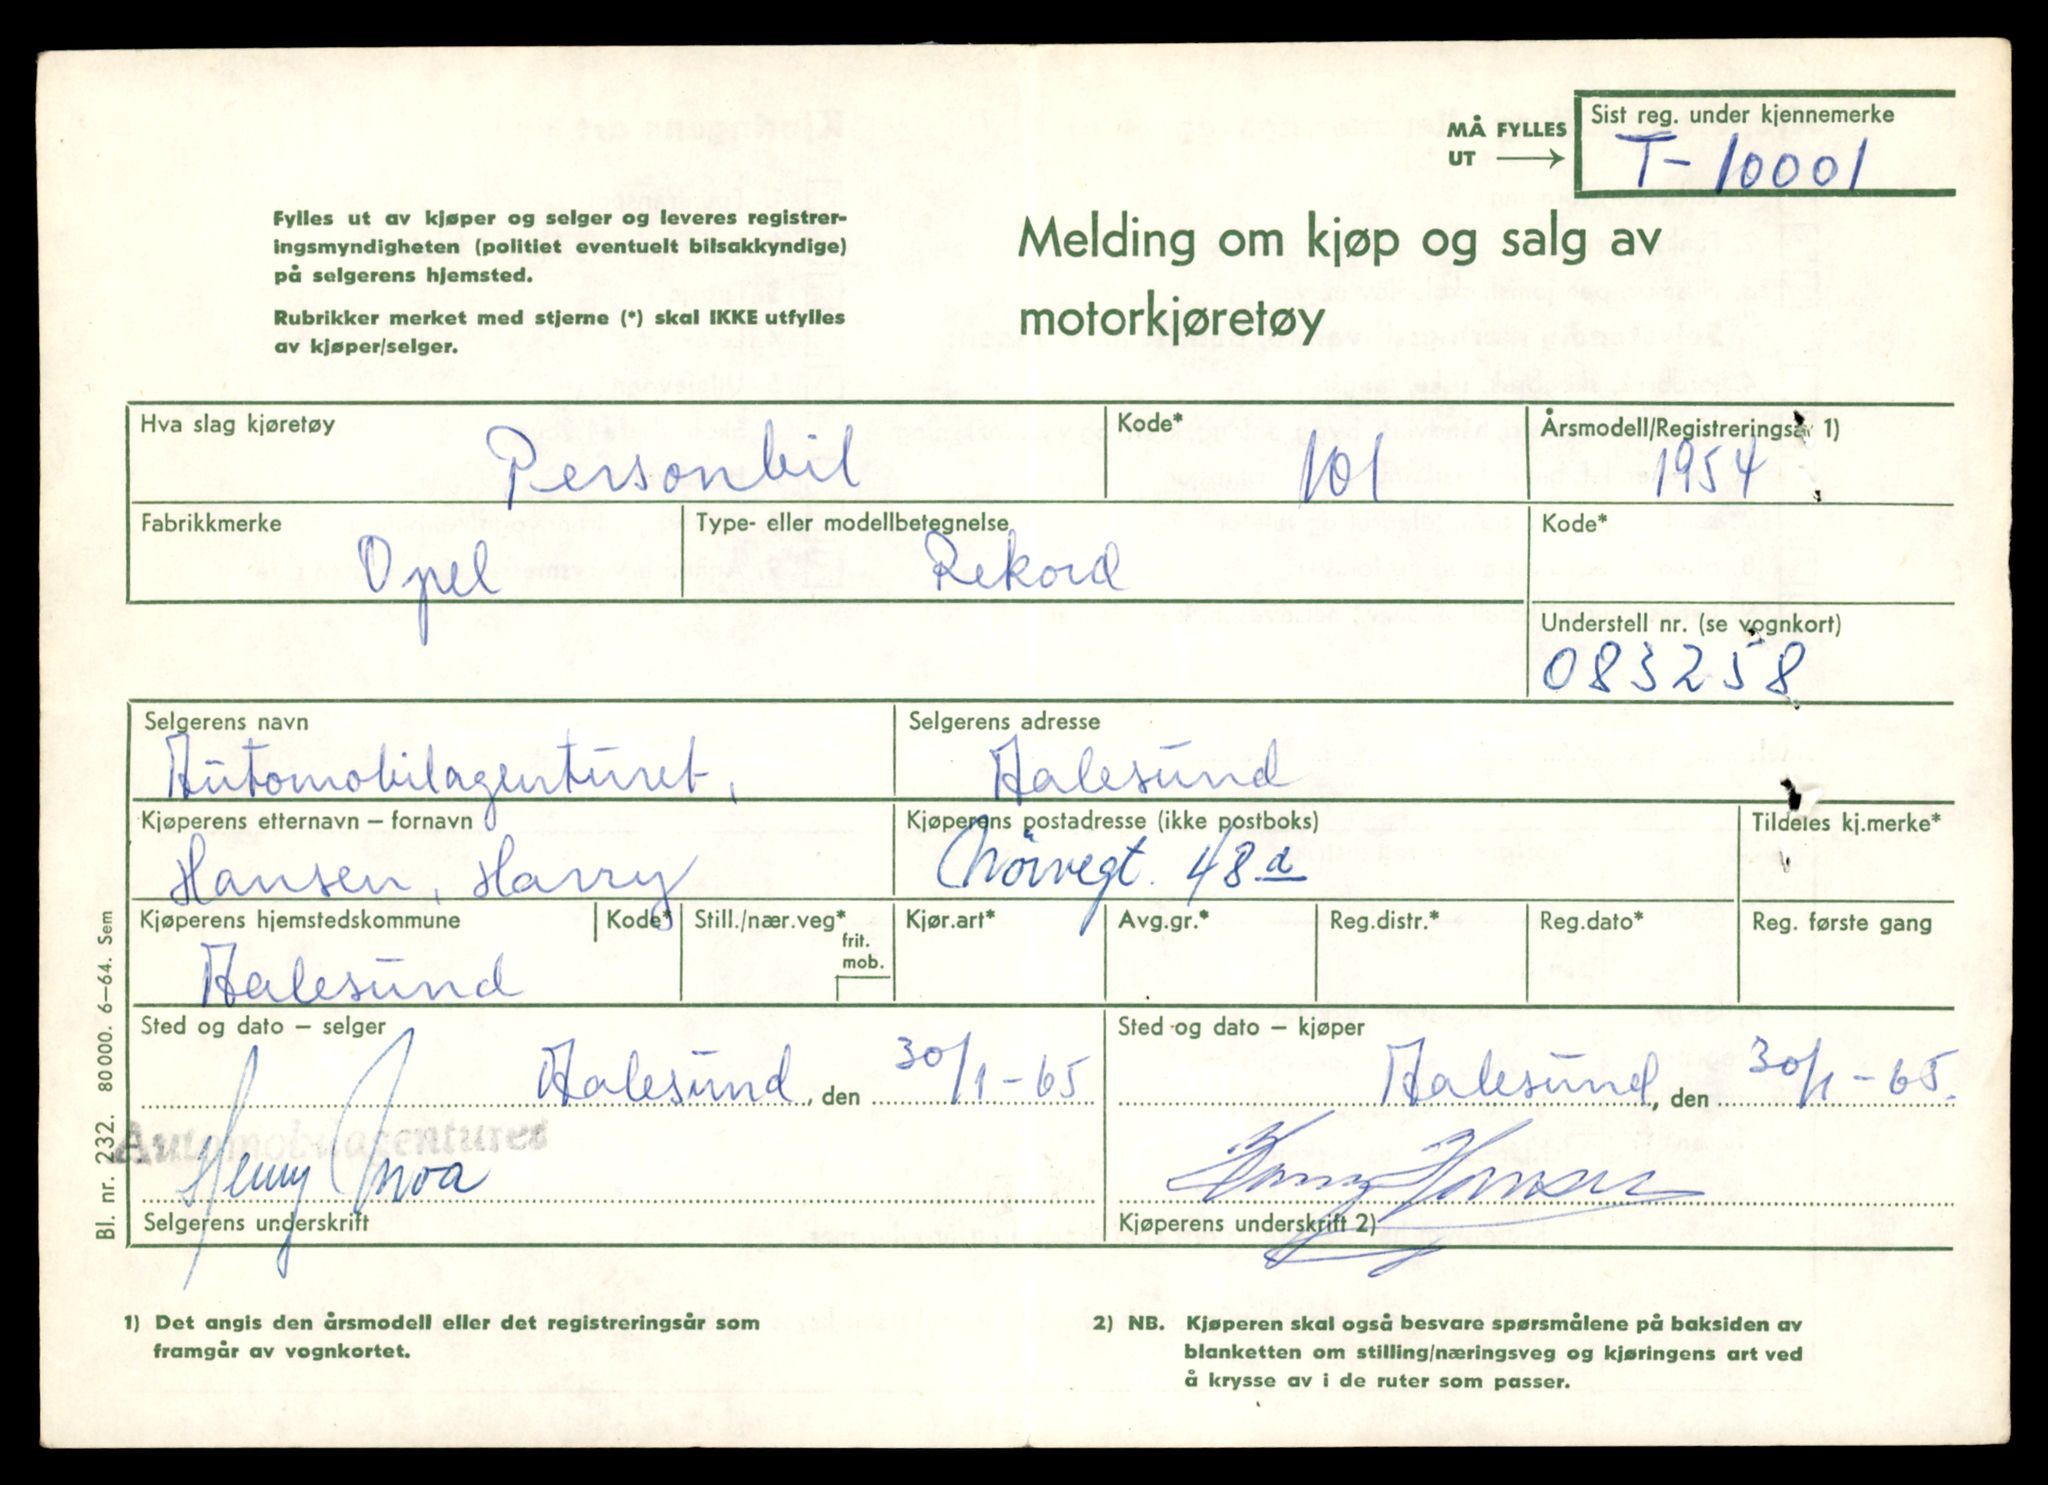 MÅ FYLLES UT → Sist reg. under kjennemerke
T-10001
Fylles ut av kjøper og selger og leveres registrer-
ingsmyndigheten (politiet eventuelt bilsakkyndige)
på selgerens hjemsted.
Rubrikker merket med stjerne (*) skal IKKE utfylles
av kjøper/selger.
Melding om kjøp og salg av
motorkjøretøy
Hva slag kjøretøy Kode* Årsmodell/Registreringsår 1)
Personbil 101 1954
Fabrikkmerke Type- eller modellbetegnelse Kode*
Opel Rekord
Understell nr. (se vognkort)
083258
Selgerens navn Selgerens adresse
Automobilagenturet, Aalesund
Kjøperens etternavn – fornavn Kjøperens postadresse (ikke postboks) Tildeles kj.merke*
Hansen, Harry 48 a
Kjøperens hjemstedskommune Kode* Still./nær.veg* frit. mob. Kjør.art* Avg.gr.* Reg.distr.* Reg.dato* Reg. første gang
Aalesund
Sted og dato – selger Sted og dato – kjøper
Aalesund, den 30/1-65 Aalesund, den 30/1-65.
Automobilagenturet
Henny Harry Hansen
Selgerens underskrift Kjøperens underskrift 2)
1) Det angis den årsmodell eller det registreringsår som
framgår av vognkortet.
2) NB. Kjøperen skal også besvare spørsmålene på baksiden av
blanketten om stilling/næringsveg og kjøringens art ved
å krysse av i de ruter som passer.
Bl. nr. 232. 80 000. 6–64. Sem